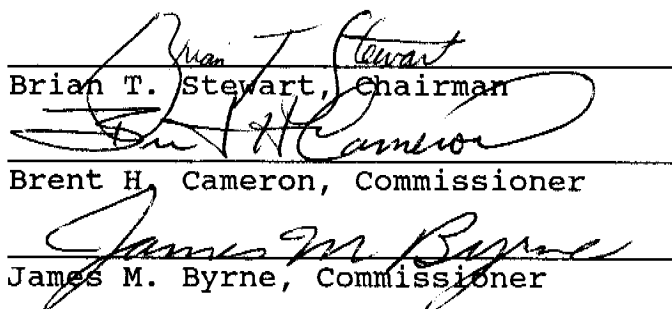 Brian T. Stewart
Brian T. Stewart, Chairman
Brent H. Cameron
Brent H. Cameron, Commissioner
James M. Byrne
James M. Byrne, Commissioner